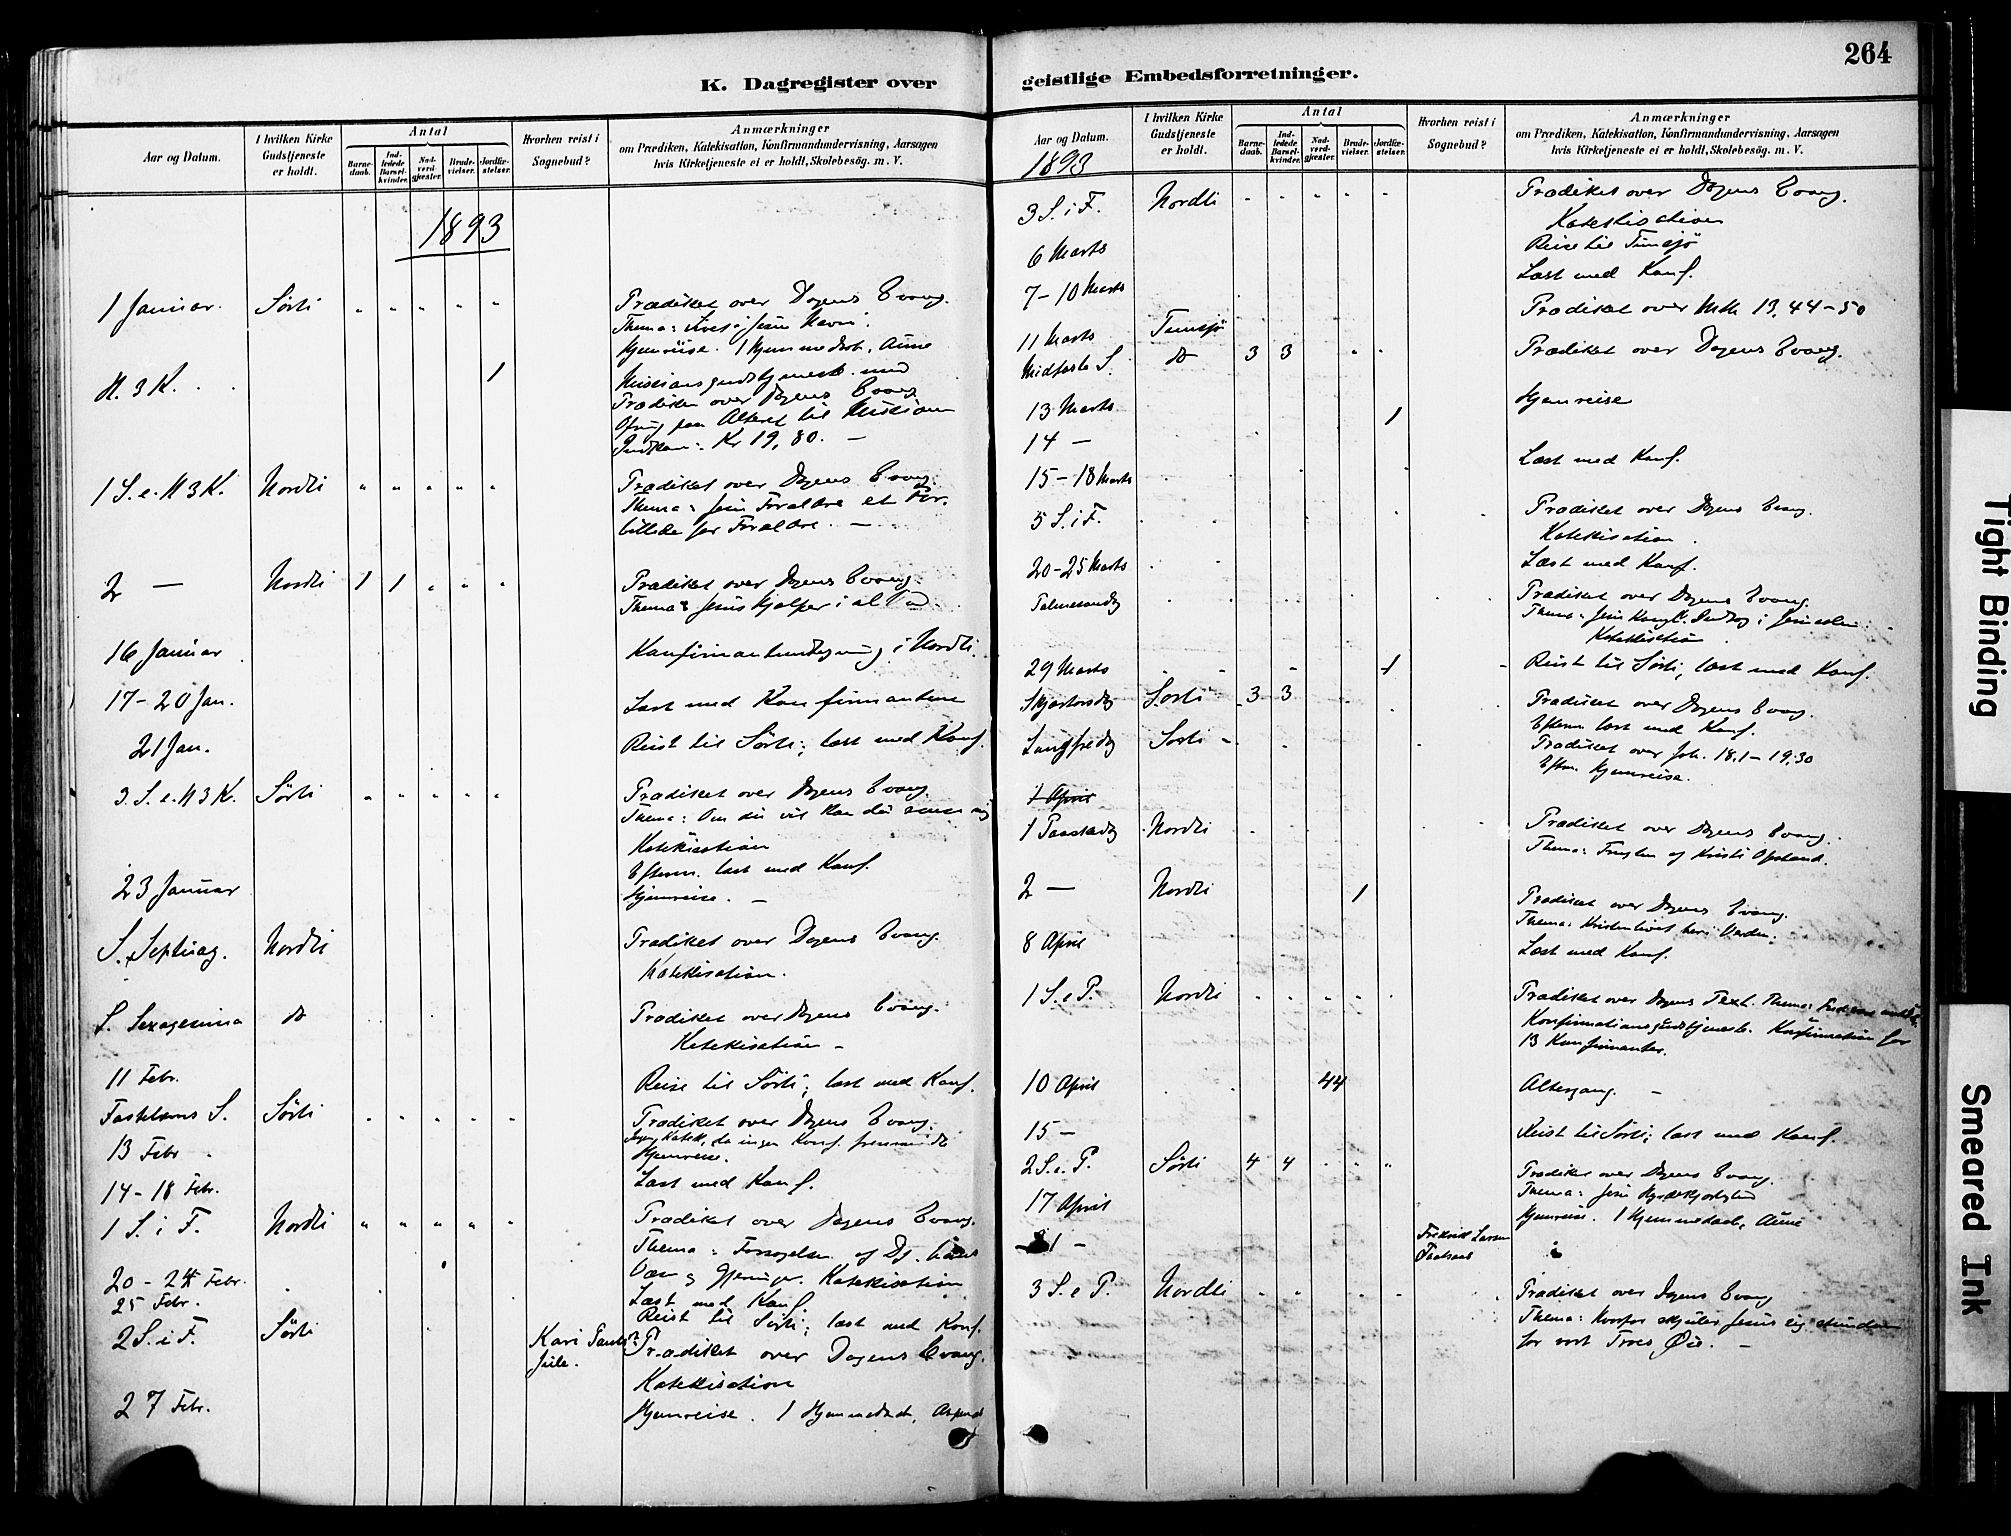 K. Dagregister over
Aar og Datum.
I hvilken Kirke Gudstjeneste er holdt.
Antal
Barnedaab.
Indledede Barselkvinder.
Nadverdgjester.
Brudevielser.
Jordfæstelser.
Hvorhen reist i Sognebud?
Anmærkninger
om Prædiken, Katekisation, Konfirmandundervisning, Aarsagen
hvis Kirketjeneste ei er holdt, Skolebesøg. m. V.
1893
1 Januar. Sørli " " " " " Prædiket over Dagens Evang.
Thema: i Jesu Navn.
Hjemreise. 1 Hjemmedøbt, Aune
H. 3 K. 1 Missionsgudstjeneste med
Prædiken over Dagens Evang.
Ofring paa Alteret til Missionen
Indkom: Kr 19,80. —
1 S. e. H 3 K. Nordli " " " " " Prædiket over Dagens Evang.
Thema: Jesu Forældre et For-
billede for Forældre. —
2 — Nordli 1 1 " " " Prædiket over Dagens Evang.
Thema: Jesus hjælper i al
16 Januar i Nordli.
17-20 Jan. Læst med Konfirmanterne
21 Jan. Reist til Sørli; læst med Konf.
3. S. e. H 3 K. Sørli " " " " " Prædiket over Dagens Evang.
Thema: Om du vil kan du
Katekisation
Efterm. læst med Konf.
23 Januar Hjemreise. —
S. Septuag. Nordli Prædiket over Dagens Evang.
Katekisation.
S. Sexagesima do Prædiket over Dagens Evang.
Katekisation —
11 Febr. Reise til Sørli; læst med Konf.
Fastelavns S. Sørli " " " " " Prædiket over Dagens Evang.
Ingen Katek., da ingen Konf. fremmødte
13 Febr. Hjemreise.
14-18 Febr. Læst med Konf.
1 S. i F. Nordli " " " " " Prædiket over Dagens Evang.
Thema: Fristelsen og Dj.
Væsen og Gjerninger. Katekisation
20-24 Febr. Læst med Konf.
25 Febr. Reist til Sørli; læst med Konf.
2 S. i F. Sørli Kari Prædiket over Dagens Evang.
Katekisation
27 Febr. Hjemreise. 1 Hjemmedøbt,
geistlige Embedsforretninger.
264
Aar og Datum.
1893
I hvilken Kirke Gudstjeneste er holdt.
Antal
Barnedaab.
Indledede Barselkvinder.
Nadverdgjester.
Brudevielser.
Jordfæstelser.
Hvorhen reist i Sognebud?
Anmærkninger
om Prædiken, Katekisation, Konfirmandundervisning, Aarsagen
hvis Kirketjeneste ei er holdt, Skolebesøg. m. V.
3 S. i F. Nordli " " " " " Prædiket over Dagens Evang.
Katekisation
6 Marts Reise til Tunsjø
7-10 Marts Læst med Konf.
11 Marts Tunsjø Prædiket over Mth 13,44-50
Midfaste S. do 3 3 " " Prædiket over Dagens Evang.
13 Marts 1 Hjemreise
14 —
15-18 Marts Læst med Konf.
5 S. i F. Prædiket over Dagens Evang.
Katekisation.
20-25 Marts Læst med Konf.
Palmesøndag Prædiket over Dagens Evang.
Thema: Jesu Kongl. Indtog i Jerusalem.
Katekisation
29 Marts 1 Reist til Sørli, læst med Konf.
Skjærtorsdag Sørli 3 3 Prædiket over Dagens Evang.
Efterm læst med Konf.
Langfredag Sørli Prædiket over Joh. 18.1-19.30
Efterm. Hjemreise.
1 April
1 Paaskedag Nordli Prædiket over Dagens Evang.
Thema: Frugten af Kristi Opstand.
2 — Nordli 1 Prædiket over Dagens Evang.
Thema: Kristenlivet her i Verden.
8 April Læst med Konf.
1 S. e P. Nordli " " " " " Prædiket over Dagens Text. Thema:
Konfirmationsgudstjeneste. Konfirmation for
13 Konfirmanter.
10 April 44 Altergang. —
15 — Reist til Sørli; læst med Konf.
2 S. e. P. Sørli 4 4 " " " Prædiket over Dagens Evang.
Thema: Jesu Hyrdekjærlighed
17 April Hjemreise. 1 Hjemmedøbt, Aune
21 — Fredrik Larsen
3 S. e P. Nordli Prædiket over Dagens Evang
Thema: Hvorfor skjuler Jesus sig stundom
for vort Troes Øie. —
Tight Binding
Smeared Ink